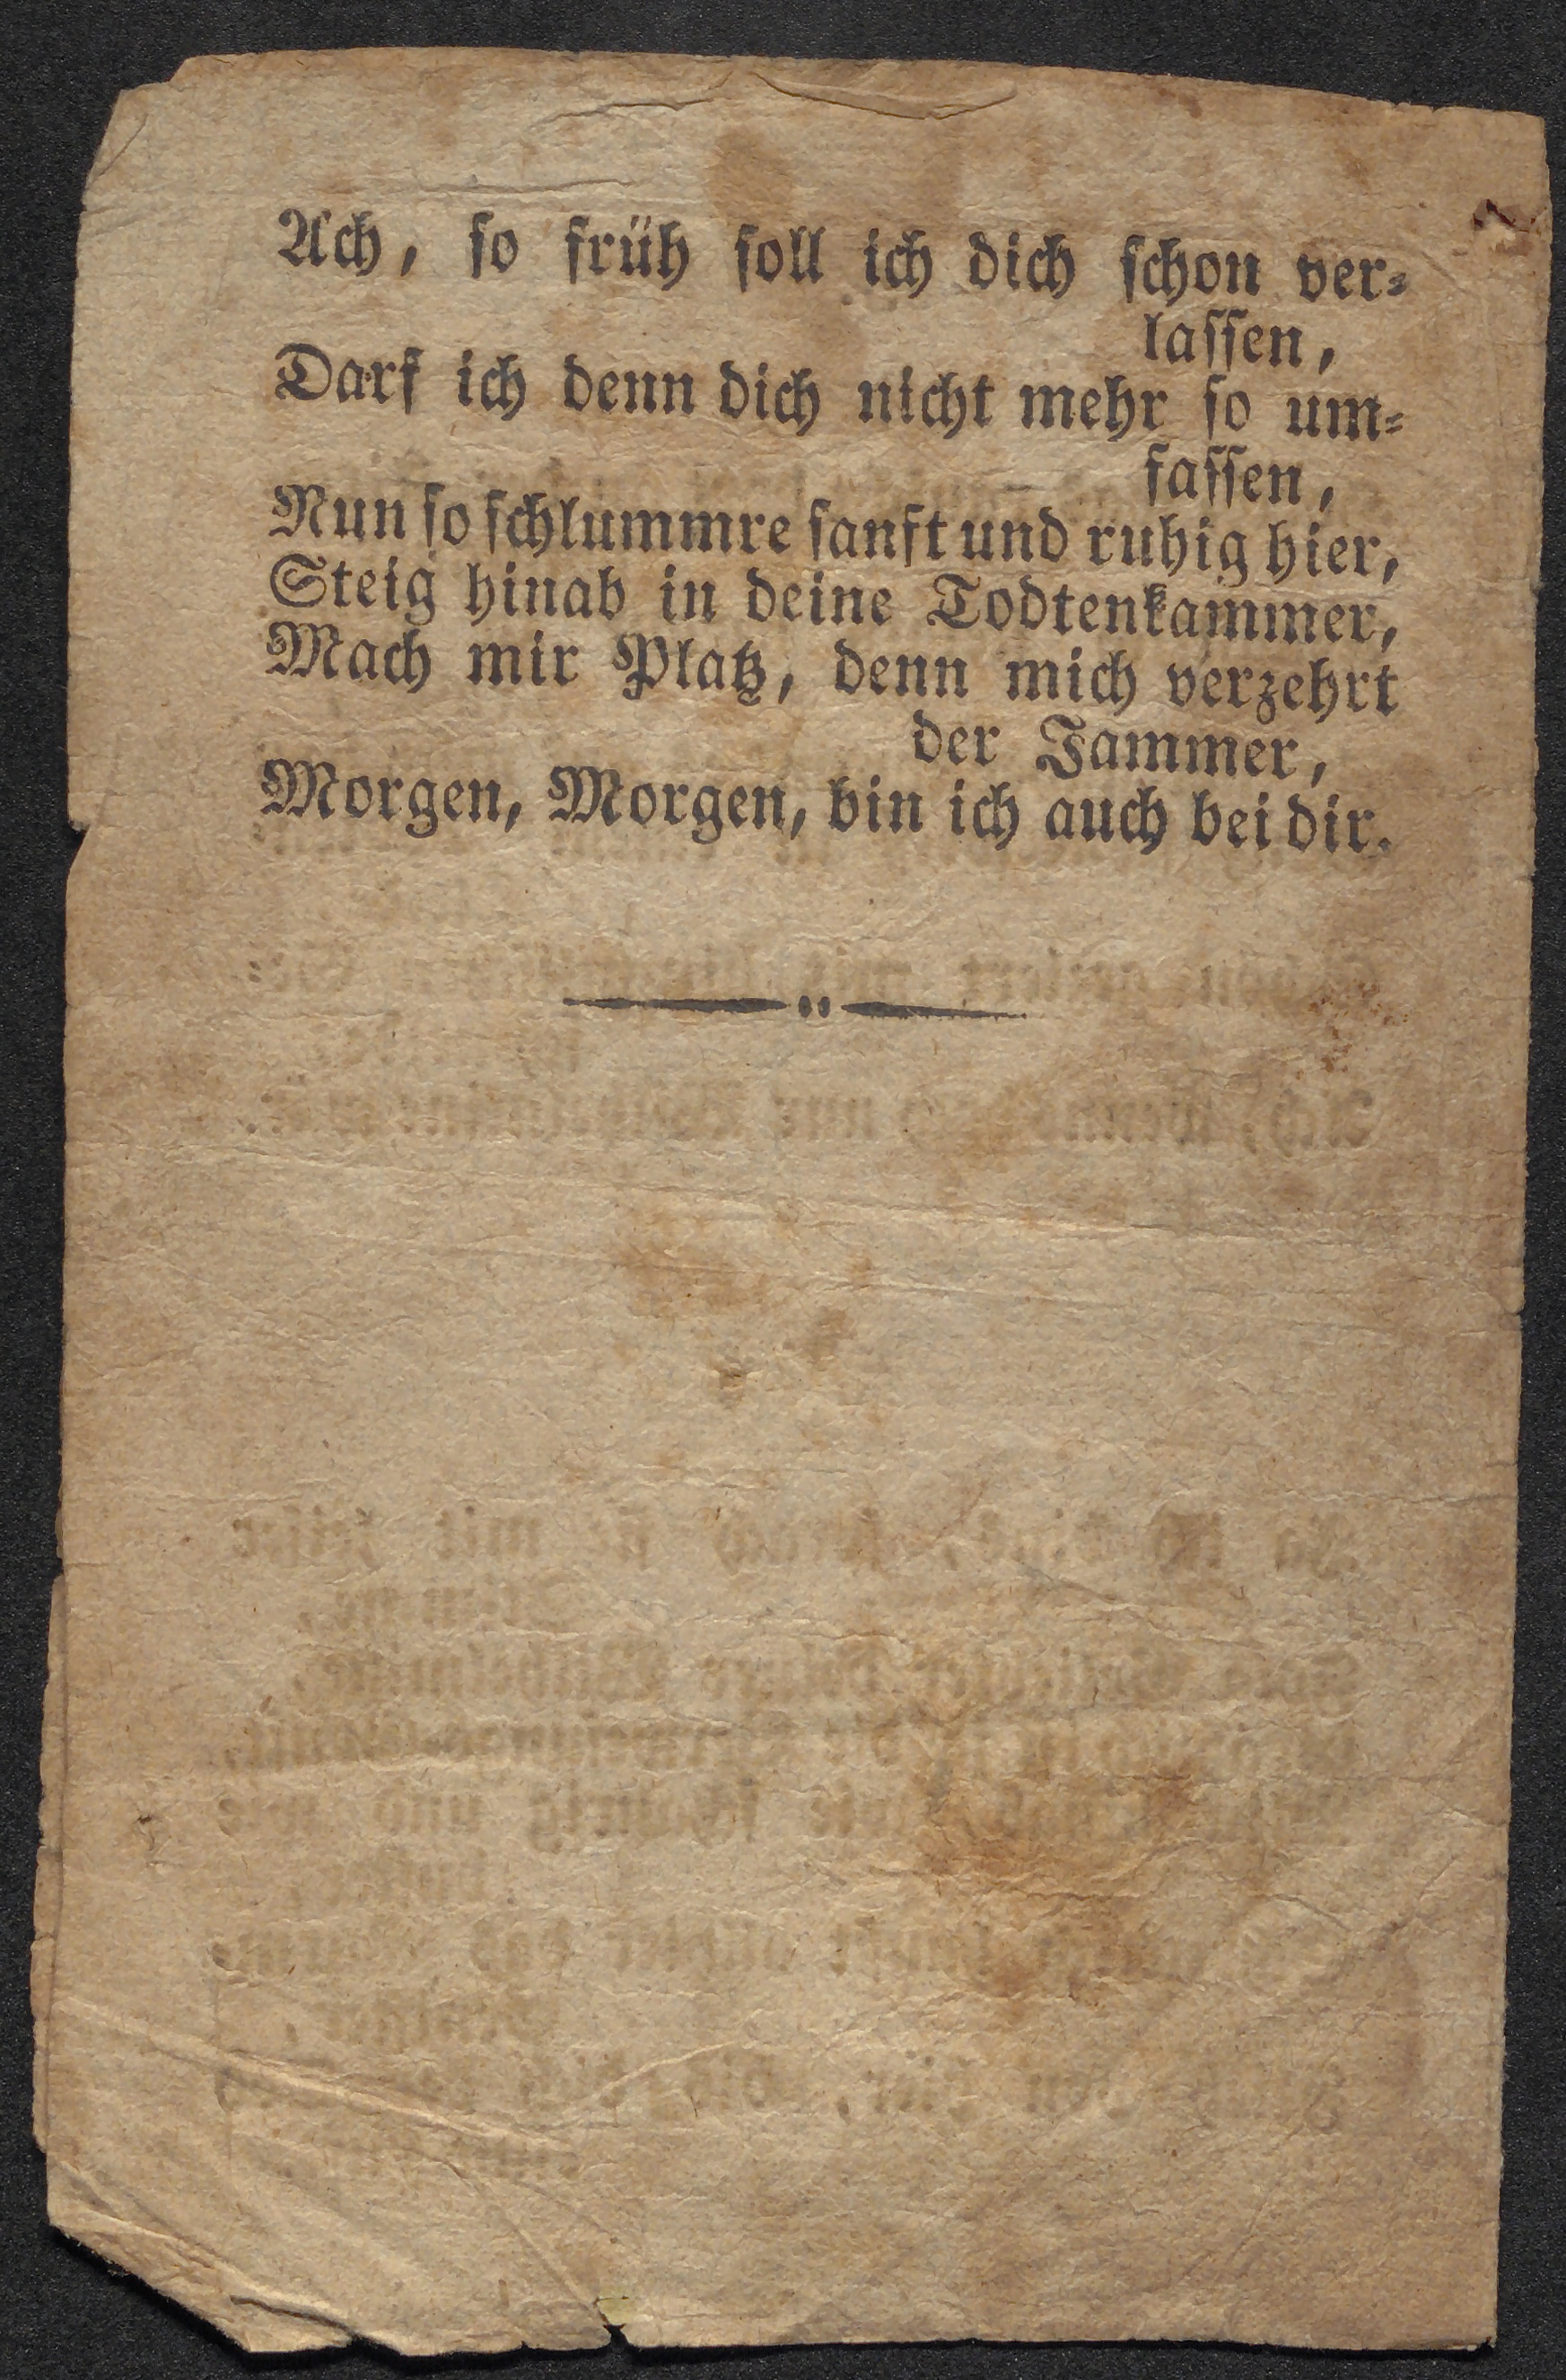 Ach, so früh soll ich dich schon ver-
lassen,
Darf ich denn dich nicht mehr so um-
fassen,
Nun so schlummre sanft und ruhig hier,
Steig hinab in deine Todtenkammer,
Mach mir Platz, denn mich verzehrt
der Jammer,
Morgen, Morgen, bin ich auch bei dir.